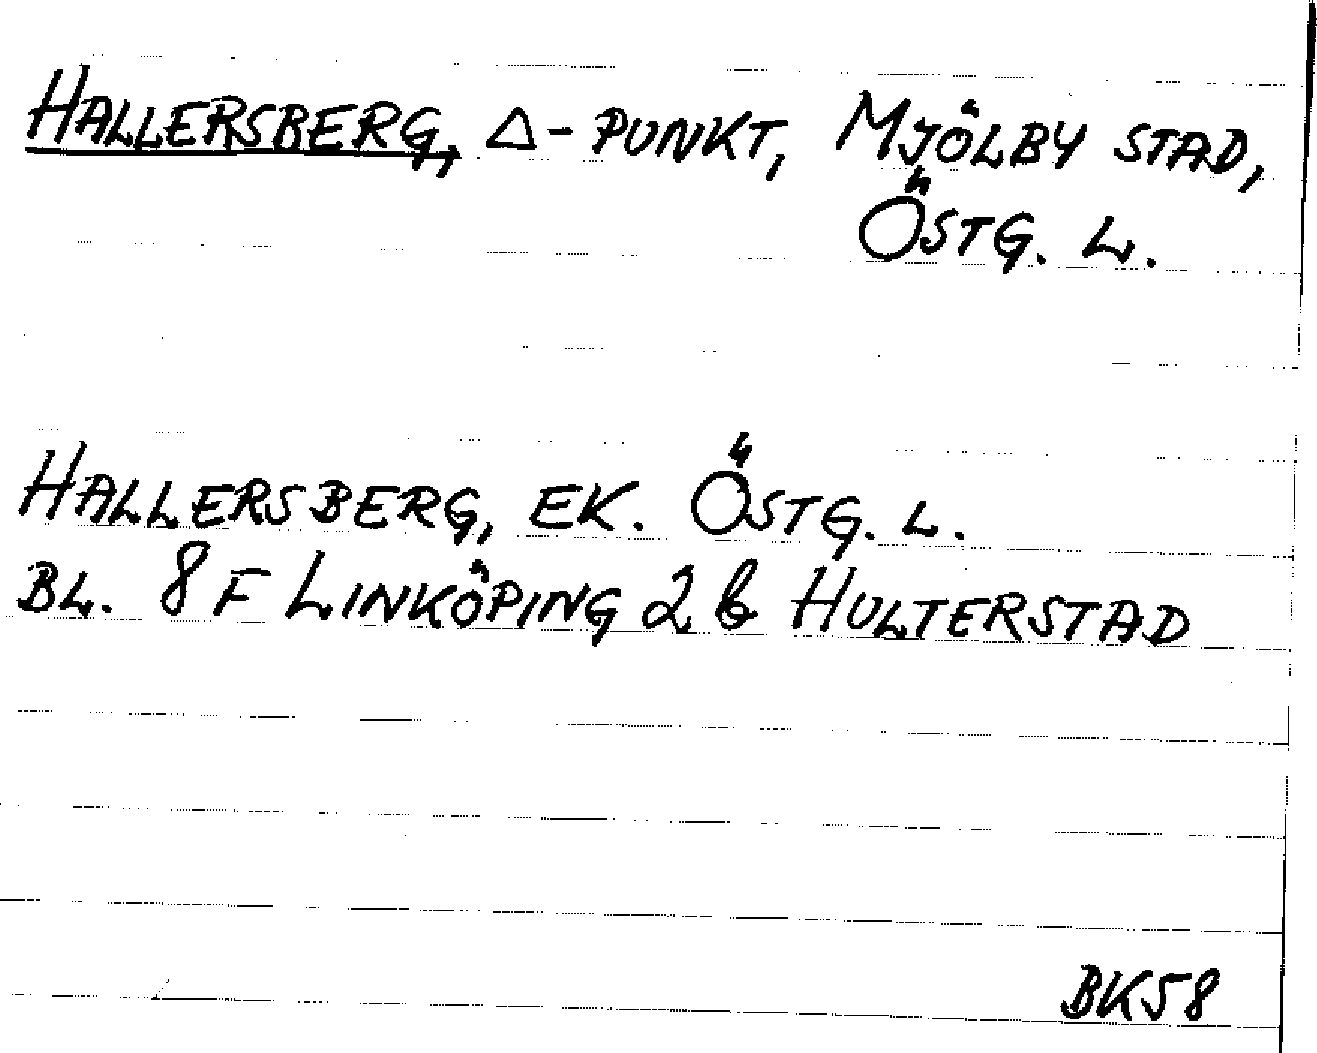 HALLERSBERG, △-PUNKT, MJÖLBY STAD,
ÖSTG. L.
HALLERSBERG, EK. ÖSTG. L.
BL. 8F LINKÖPING 2b HULTERSTAD
BK58